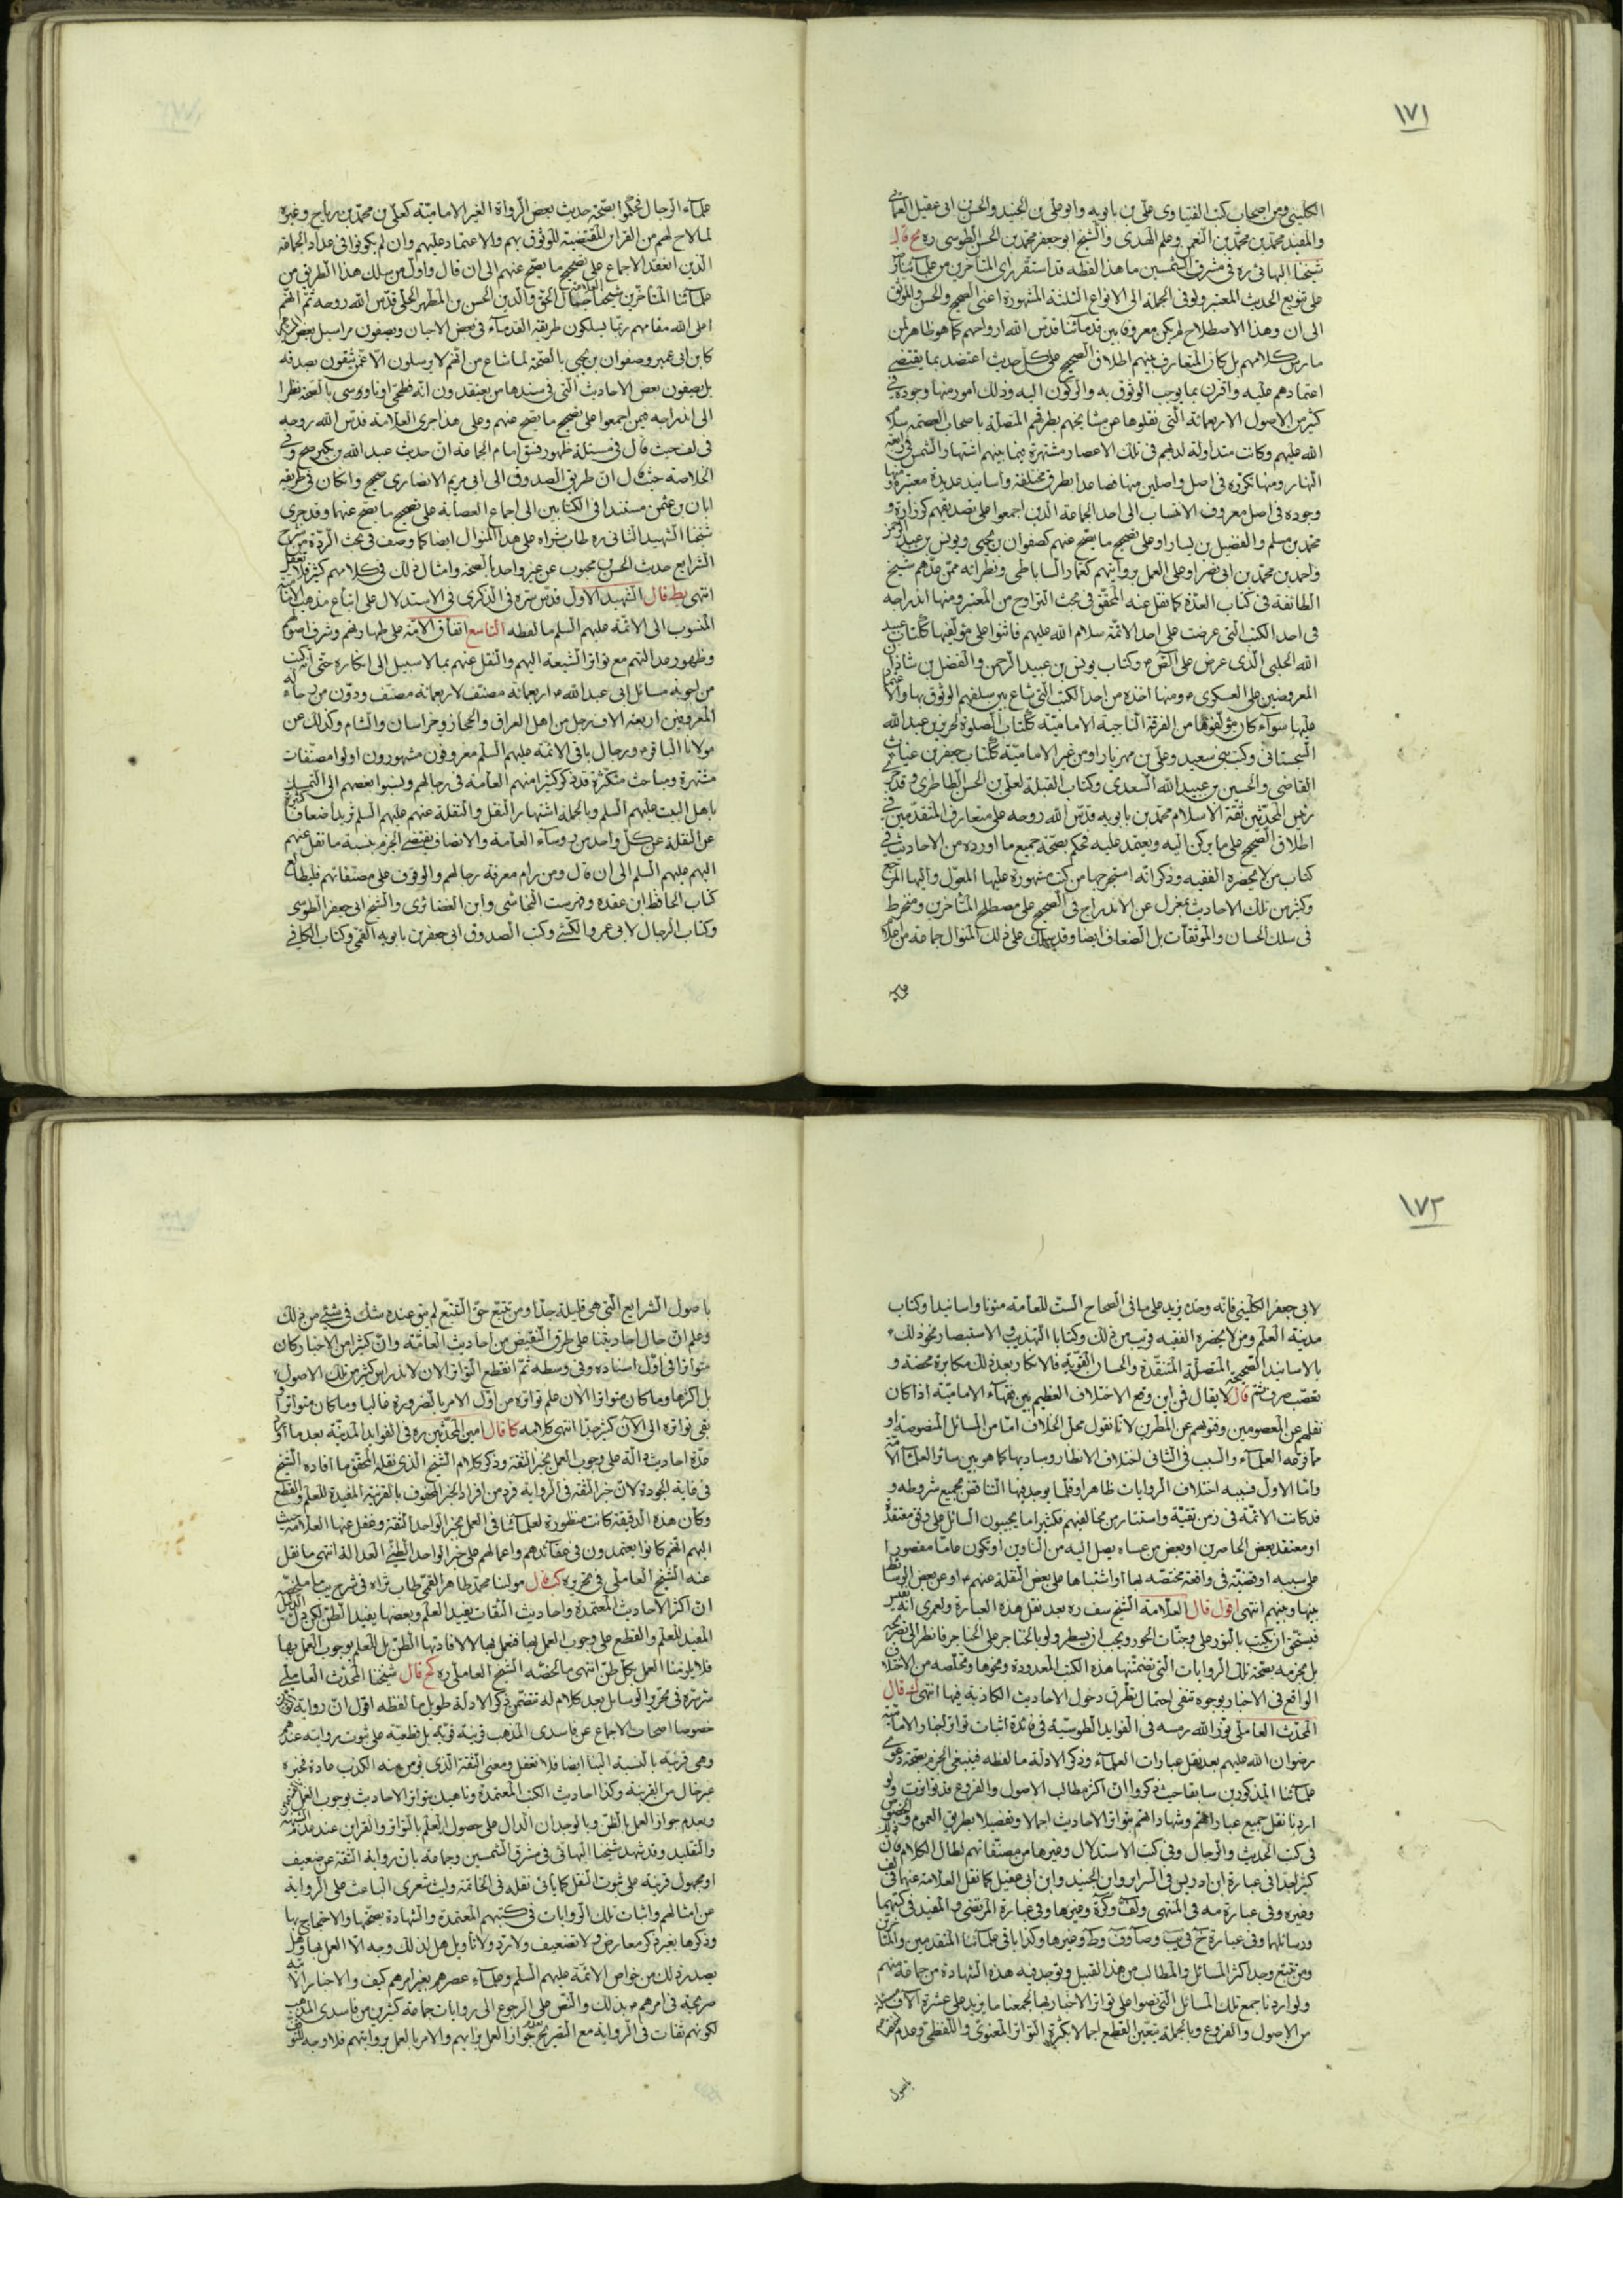 ١٧١
الكليني ومن اصحاب كتب الفتاوى علي بن بابويه وابو علي بن الجنيد والحسن بن ابى عقيل العماني
والمفيد محمد بن محمد بن النعمن وعلم الهدى والشيخ ابو جعفر محمد بن الحسن الطوسى ره يح قال
شيخنا البهائى ره فى مشرق الشمسين ما هذا لفظه قد استقر راى المتاخرين من علمائنا رض
على تنويع الحديث المعتبر ولو فى الجملة الى الانواع الثلثة المشهورة اعنى الصحيح والحسن والموثق
الى ان وهذا الاصطلاح لم يكن معروفا بين قدمائنا قدس الله ارواحهم كما هو ظاهر لمن
مارس كلامهم بل كان المتعارف بينهم اطلاق الصحيح على كل حديث اعتضد بما يقتضى
اعتمادهم عليه واقترن بما يوجب الوثوق به والركون اليه وذلك امور منها وجوده فى
كثير من الاصول الاربعمائة التى نقلوها عن مشايخهم بطرقهم المتصلة باصحاب العصمة سلام
الله عليهم وكانت متداولة لديهم فى تلك الاعصار مشتهرة فيما بينهم اشتهار الشمس فى رابعة
النهار ومنها تكرره فى اصل او اصلين منها فصاعدا بطرق مختلفة واسانيد عديدة معتبرة ومنها
وجوده فى اصل معروف الانتساب الى احد الجماعة الذين اجمعوا على تصديقهم كزرارة و
محمد بن مسلم والفضيل بن يسار او على تصحيح ما يصح عنهم كصفوان بن يحيى ويونس بن عبد الرحمن
واحمد بن محمد بن ابى نصر او على العمل بروايتهم كعمار الساباطى ونظرائه ممن عدهم شيخ
الطائفة فى كتاب العدة كما نقل عنه المحقق فى بحث التراوح من المعتبر ومنها اندراجه
فى احد الكتب التى عرضت على احد الائمة سلام الله عليهم فاثنوا على مؤلفيها ككتاب عبيد
الله الحلبى الذى عرض على الصادق ع وكتاب يونس بن عبد الرحمن والفضل بن شاذان
المعروضين على العسكرى ع ومنها اخذه من احد الكتب التى شاع بين سلفهم الوثوق بها والاعتماد
عليها سواء كان مؤلفوها من الفرقة الناجية الامامية ككتاب الصلوة لحريز بن عبد الله
السجستانى وكتب بنى سعيد وعلى بن مهزيار او من غير الامامية ككتاب حفص بن غياث
القاضى والحسين بن عبيد الله السعدى وكتاب القبلة لعلى بن الحسن الطاطرى وقد جرى
رئيس المحدثين ثقة الاسلام محمد بن بابويه قدس الله روحه على متعارف المتقدمين فى
اطلاق الصحيح على ما يركن اليه ويعتمد عليه فحكم بصحة جميع ما اورده من الاحاديث فى
كتاب من لا يحضره الفقيه وذكر انه استخرجها من كتب مشهورة عليها المعول واليها المرجع
وكثير من تلك الاحاديث بمعزل عن الاندراج فى الصحيح على مصطلح المتاخرين ومنخرط
فى سلك الحسان والموثقات بل الضعاف ايضا وقد سلك على ذلك المنوال جماعة من اعلام
علماء الرجال فحكموا بصحة حديث بعض الرواة الغير الامامية كعلى بن محمد بن رياح وغيره
لما لاح لهم من القراين المقتضية للوثوق بهم والاعتماد عليهم وان لم يكونوا فى عداد الجماعة
الذين انعقد الاجماع على تصحيح ما يصح عنهم الى ان قال واول من سلك هذا الطريق من
علمائنا المتاخرين شيخنا العلامة جمال الحق والدين الحسن بن المطهر الحلى قدس الله روحه ثم انهم
اعلى الله مقامهم ربما يسلكون طريقة القدماء فى بعض الاحيان ويصفون مراسيل بعض
كابن ابى عمير وصفوان بن يحيى بالصحة لما شاع من انهم لا يرسلون الا عمن يثقون بصدقه
بل يصفون بعض الاحاديث التى فى سندها من يعتقدون انه فطحى او ناووسى بالصحة نظرا
الى اندراجه فيمن اجمعوا على تصحيح ما يصح عنهم وعلى هذا جرى العلامة قدس الله روحه
فى لف حيث قال فى مسئلة ظهور فسق امام الجماعة ان حديث عبد الله بن بكير صحيح وفى
الخلاصة حيث قال ان طريق الصدوق الى ابى مريم الانصارى صحيح وان كان فى طريقه
ابان بن عثمن مستندا فى الكتابين الى اجماع العصابة على تصحيح ما يصح عنهما وقد جرى
شيخنا الشهيد الثانى ره طاب ثراه على هذا المنوال ايضا كما وصف فى بحث الردة من شرح
الشرايع حديث الحسن بن محبوب عن غير واحد بالصحة وامثال ذلك فى كلامهم كثير فلا تغفل
انتهى يط قال الشهيد الاول قدس سره فى الذكرى فى الاستدلال على اتباع مذهب الامامية
المنسوب الى الائمة عليهم السلم ما لفظه التاسع اتفاق الامة على طهارتهم وشرف اصولهم
وظهور عدالتهم مع تواتر الشيعة اليهم والنقل عنهم بما لا سبيل الى انكاره حتى انه كتب
من اجوبة مسائل ابى عبد الله ع اربعمائة مصنف لاربعمائة مصنف ودون من رجاله
المعروفين اربعة الاف رجل من اهل العراق والحجاز وخراسان والشام وكذلك عن
مولانا الباقر ع ورجال باقى الائمة عليهم السلم معروفون مشهورون اولوا مصنفات
مشتهرة ومباحث متكثرة قد ذكر كثيرا منهم العامة فى رجالهم ونسبوا بعضهم الى التمسك
باهل البيت عليهم السلم وبالجملة اشتهار النقل والنقلة عنهم عليهم السلم تزيد اضعافا كثيرة
عن النقلة عن كل واحد من رؤساء العامة والانصاف يقتضى الجزم بنسبة ما نقل عنهم
اليهم عليهم السلم الى ان قال ومن رام معرفة رجالهم والوقوف على مصنفاتهم فليطالع
كتاب الحافظ ابن عقدة وفهرست النجاشى وابن الغضائرى والشيخ ابى جعفر الطوسى
وكتاب الرجال لابى عمرو الكشى وكتب الصدوق ابى جعفر بن بابويه القمى وكتاب الكافى
١٧٢
لابى جعفر الكلينى فانه وحده يزيد على ما فى الصحاح الست للعامة متونا واسانيد وكتاب
مدينة العلم ومن لا يحضره الفقيه قريب من ذلك وكتابا التهذيب والاستبصار نحو ذلك
بالاسانيد الصحيحة المتصلة المنتقدة والحسان القوية فالانكار بعد ذلك مكابرة محضة و
تعصب صرف ثم قال لا يقال فمن اين وقع الاختلاف العظيم بين فقهاء الامامية اذا كان
نقلهم عن المعصومين وفتويهم عن المطهرين لانا نقول محل الخلاف اما من المسائل المنصوصة او
مما فرعه العلماء والسبب فى الثانى اختلاف الانظار ومباديها كما هو بين سائر العلماء الامة
واما الاول فسببه اختلاف الروايات ظاهرا وقلما يوجد فيها التناقض بجميع شروطه و
قد كانت الائمة فى زمن تقية واستتار من مخالفيهم فكثيرا ما يجيبون السائل على وفق معتقده
او معتقد بعض الحاضرين او بعض من عساه يصل اليه من المناوين او يكون عاما مقصورا
على سببه او قضية فى واقعة مختصة بها او اشتباها على بعض النقلة عنهم ع او عن بعض الوسائط
بينها وبينهم انتهى اقول قال العلامة الشيخ سف ره بعد نقل هذه العبارة ولعمرى انه نفيس
يستحق ان يكتب بالنور على وجنات الحور ويجب ان يسطر ولو بالخناجر على الحناجر فانظر الى تصريحه
بل جزمه بصحة تلك الروايات التى تضمنتها هذه الكتب المعدودة ونحوها وتخلصه من الاختلاف
الواقع فى الاخبار بوجوه تنفى احتمال تطرق دخول الاحاديث الكاذبة فيها انتهى ك قال
المحدث العاملى نور الله رمسه فى الفوايد الطوسية فى فائدة اثبات تواتر اخبار الامامية
رضوان الله عليهم بعد نقل عبارات العلماء وذكر الادلة ما لفظه فينبغى الجزم بصحة دعوى
علمائنا المذكورين سابقا حيث ذكروا ان اكثر مطالب الاصول والفروع قد تواترت ولو
اردنا نقل جميع عباراتهم وشهاداتهم بتواتر الاحاديث اجمالا وتفصيلا بطريق العموم والخصوص
فى كتب الحديث والرجال وفى كتب الاستدلال وغيرها من مصنفاتهم لطال الكلام فان ذلك
كثير جدا فى عبارة ابن ادريس فى السرائر وابن الجنيد وابن ابى عقيل كما نقل العلامة عنهما فى لف
وغيره وفى عبارة مه فى المنتهى ولف وكره وغيرها وفى عبارة المرتضى والمفيد فى كتبهما
ورسائلهما وفى عبارة خ فى يب وصا وف وط وغيرها وكذا باقى علمائنا المتقدمين والمتاخرين
ومن تتبع وجد اكثر المسائل والمطالب من هذا القبيل وتوجد فيه هذه الشهادة من جماعة منهم
ولو اردنا جمع تلك المسائل التى نصوا على تواتر الاخبار بها لجمعنا ما يزيد على عشرة الاف مسئلة
من الاصول والفروع وبالجملة يتعين القطع اجمالا بكثرة التواتر المعنوى واللفظى وعدم
باصول
باصول الشرايع التى هى قليلة جدا ومن تتبع حق التتبع لم يبق عنده شك فى شيئ من ذلك
وعلم ان حال احاديثنا على طرف النقيض من احاديث العامة وان كثيرا من الاخبار كان
متواترا فى اول اسناده وفى وسطه ثم انقطع التواتر الان لاندراس كثير من تلك الاصول
بل اكثرها وما كان متواترا الان علم تواتره من اول الامر بالضرورة غالبا وما كان متواترا و
بقى تواتره الى الان كثير جدا انتهى كلامه كا قال امين المحدثين ره فى الفوايد المدنية بعد ما اورد
عدة احاديث دالة على وجوب العمل بخبر الثقة وذكر كلام الشيخ الذى نقله المحقق ما افاده الشيخ
فى غاية الجودة لان خبر الثقة فى الرواية فرد من افراد الخبر المحفوف بالقرينة المفيدة للعلم والقطع
وكأن هذه الدقيقة كانت منظورة لعلمائنا فى العمل بخبر الواحد الثقة وغفل عنها العلامة حيث
اليهم انهم كانوا يعتمدون فى عقائدهم واعمالهم على خبر الواحد الظنى العدالة انتهى ما نقل
عنه الشيخ العاملى فى تحريره كب قال مولينا محمد طاهر القمى طاب ثراه فى شرح يب ما ملخصه
ان اكثر الاحاديث المعتمدة واحاديث الثقات يفيد العلم وبعضها يفيد الظن لكن دل الدليل
المفيد للعلم والقطع على وجوب العمل بها فنعمل بها لا لافادتها الظن بل للعلم بوجوب العمل بها
فلا يلزمنا العمل بكل ظن انتهى ما لخصه الشيخ العاملى ره كج قال شيخنا المحدث العاملى
سره فى تحرير الوسايل بعد كلام له تتضمن ذكر الادلة طويل ما لفظه اقول ان رواية
خصوصا اصحاب الاجماع عن فاسدى المذهب قرينة قوية بل قطعية على ثبوت روايته عندهم
وهى قرينة بالنسبة الينا ايضا فلا تغفل ومعنى الثقة الذى يؤمن منه الكذب عادة فخبره
غير خال من القرينة وكذا احاديث الكتب المعتمدة وناهيك بتواتر الاحاديث بوجوب العمل
وبعدم جواز العمل بالظن وبالوجدان الدال على حصول العلم بالتواتر والقراين عند عدم الشبهة
والتقليد وقد شهد شيخنا البهائى فى مشرق الشمسين وجماعة بان رواية الثقة عن ضعيف
او مجهول قرينة على ثبوت النقل كما ياتى نقله فى الخاتمة وليت شعرى الباعث على الرواية
عن امثالهم واثبات تلك الروايات فى كتبهم المعتمدة والشهادة بصحتها والاحتجاج بها
وذكرها بغير ذكر معارض ولا تضعيف ولا رد ولا تاويل هل لذلك وجه الا العمل بها وهل
يصدر ذلك من خواص الائمة عليهم السلم وعلماء عصرهم بغير امرهم كيف والاخبار الاتية
صريحة فى امرهم ع بذلك والنص على الرجوع الى روايات جماعة كثيرين من فاسدى المذهب
لكونهم ثقات فى الرواية مع التصريح بعدم جواز العمل برايهم والامر بالعمل بروايتهم فلا وجه للتوقف